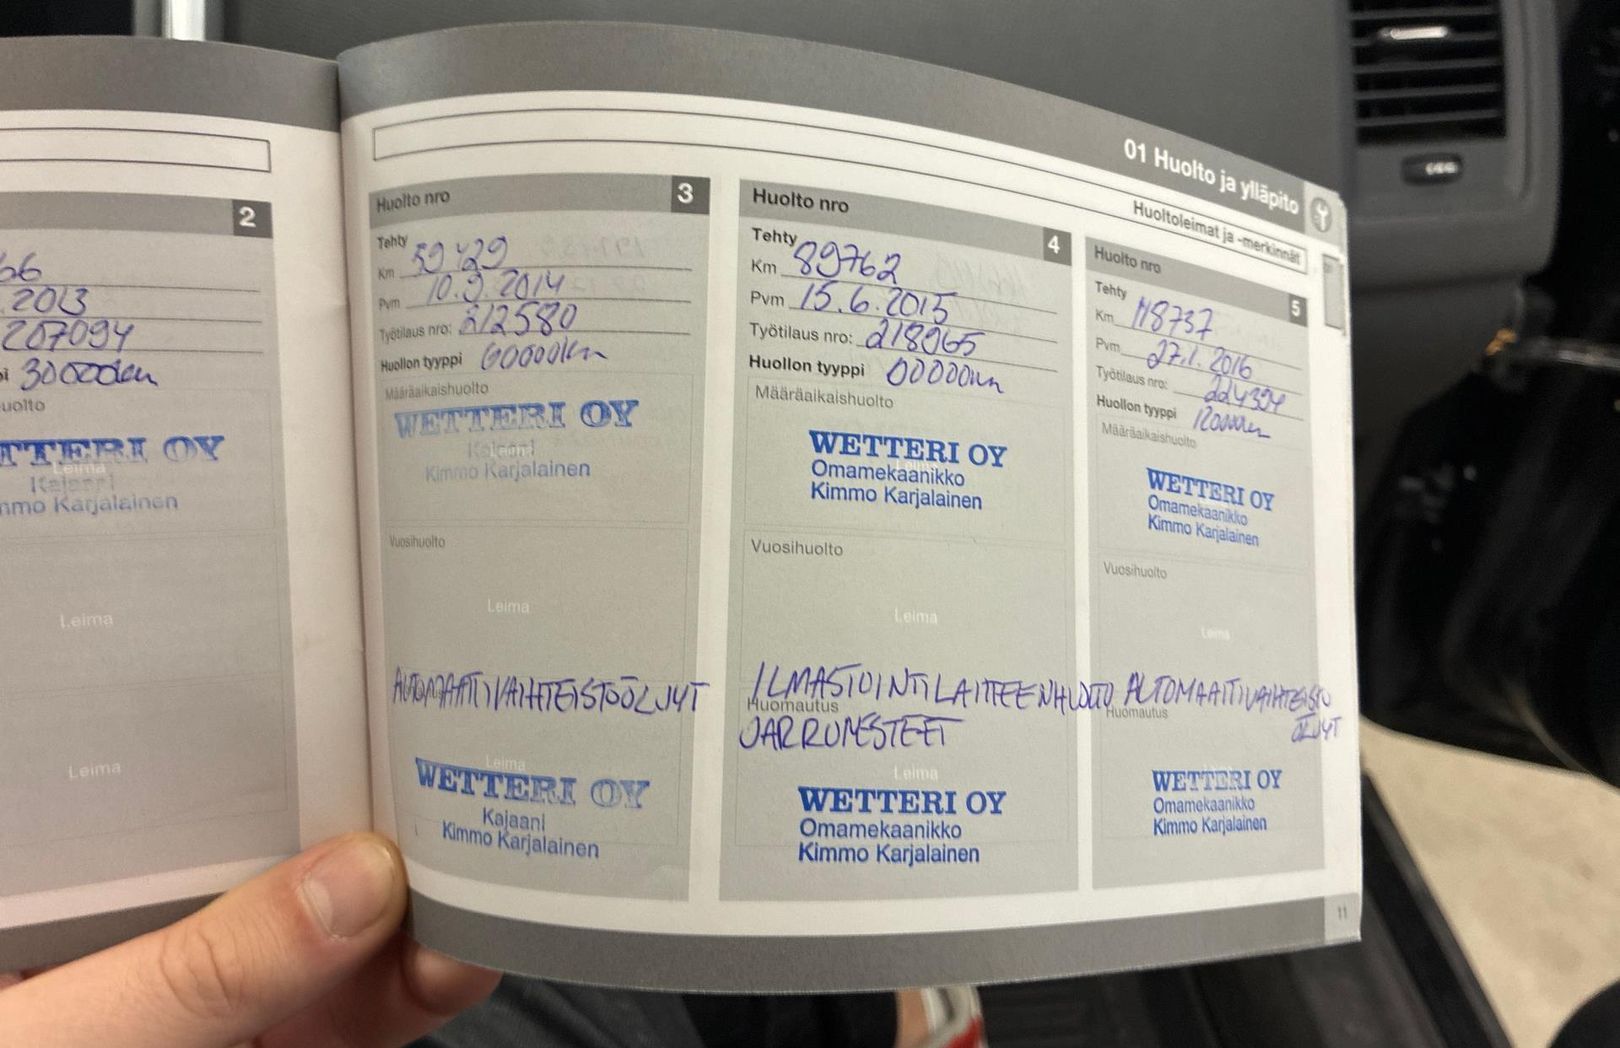 01 Huolto ja ylläpito
Huoltoleimat ja -merkinnät
2
66
.2013
207094
30000km
uolto
TTERI OY
Leima
mmo Karjalainen
Leima
Leima
Huolto nro 3
Tehty
Km 59429
Pvm 10.9.2014
Työtilaus nro: 212580
Huollon tyyppi 60000km
Määräaikaishuolto
WETTERI OY
Kajaani
Kimmo Karjalainen
Vuosihuolto
Leima
AUTOMAATTIVAIHTEISTOÖLJYT
Leima
WETTERI OY
Kajaani
Kimmo Karjalainen
Huolto nro 4
Tehty
Km 89762
Pvm 15.6.2015
Työtilaus nro: 218965
Huollon tyyppi 00000km
Määräaikaishuolto
WETTERI OY
Omamekaanikko
Kimmo Karjalainen
Vuosihuolto
Leima
ILMASTOINTILAITTEENHUOLTO
Huomautus
JARRUNESTEET
Leima
WETTERI OY
Omamekaanikko
Kimmo Karjalainen
Huolto nro 5
Tehty
Km 118737
Pvm 27.1.2016
Työtilaus nro: 224394
Huollon tyyppi 120000km
Määräaikaishuolto
WETTERI OY
Omamekaanikko
Kimmo Karjalainen
Vuosihuolto
Leima
AUTOMAATTIVAIHTEISTO
Huomautus
ÖLJYT
WETTERI OY
Omamekaanikko
Kimmo Karjalainen
11